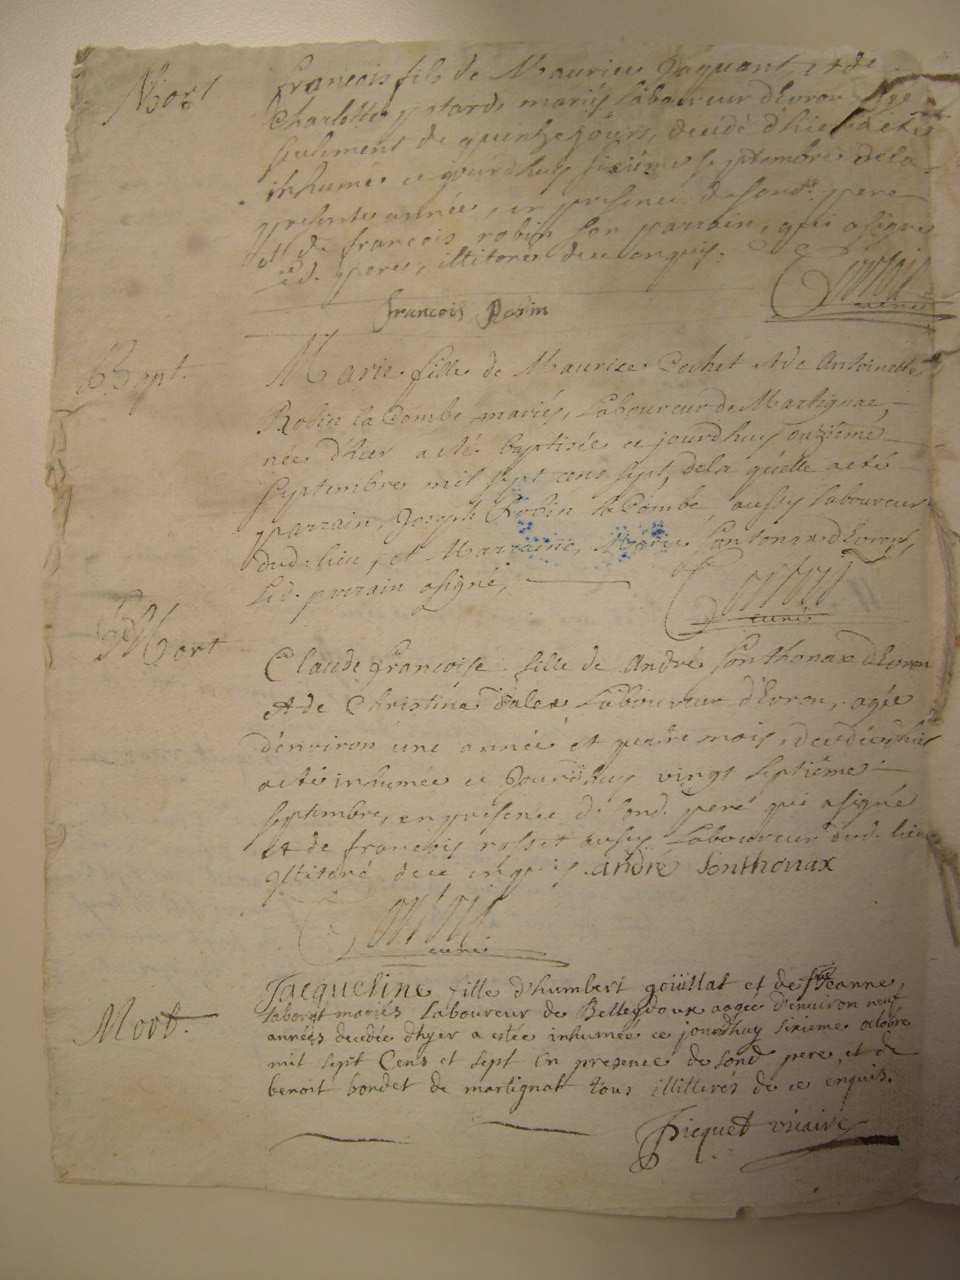 Mort
françois fils de Maurice Jaquant et de
Charlotte patard, mariés laboureur d'Evron
seulement de quinze jours, decédé d'hier a été
inhumé ce jourd'huy sixiéme septembre de la
presente année, en presence de sond. pere
et de françois robin son parrain, qui a signé
led. pere, illitoré de ce enquis.
françois Robin
curé
Bapt.
Marie fille de Maurice Cochet et de Antoinette
Robin la Combe mariés, laboureur de Martignac,
née d'hier a eté baptisée ce jourdhuy onziéme
septembre mil sept cens sept, de la quelle a eté
parrain, Joseph Robin la Combe, aussy laboureur
dud. lieu, et Marraine, Marie Sonthonax d'Evron,
led. parrain a signé,
curé
Mort
Claude françoise fille de André Sonthonax d'Evron
et de Christine laboureur d'Evron, agée
d'environ une année et quatre mois, decedée d'hier
a eté inhumée ce Jourdhuy vingt septiéme
septembre, en présence de sond. peré qui a signé
et de françois rosset aussy laboureur dud. lieu
illitéré de ce enquis. André Sonthonax
curé
Mort.
Jacqueline fille d'humbert goüillat et de Jeanne
mariés laboureur de Belleydoux aagée d'environ neuf
années decedée d'hyer a estée inhumée ce jourdhuy sixieme octobre
mil sept Cens et sept En presence de sond pere, et de
benoit bondet de martignat tous illitterés de ce enquis.
Picquet vicaire